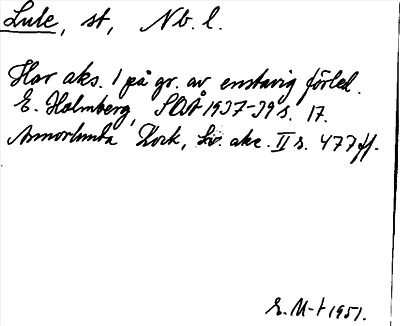 Lule, st, Nb. l.
Har aks. 1 på gr. av enstavig förled.
E. Holmberg, SOÅ 1937-39 s. 17.
Annorlunda Kock, Sv. akc. II s. 477 ff.
E. M-t 1951.